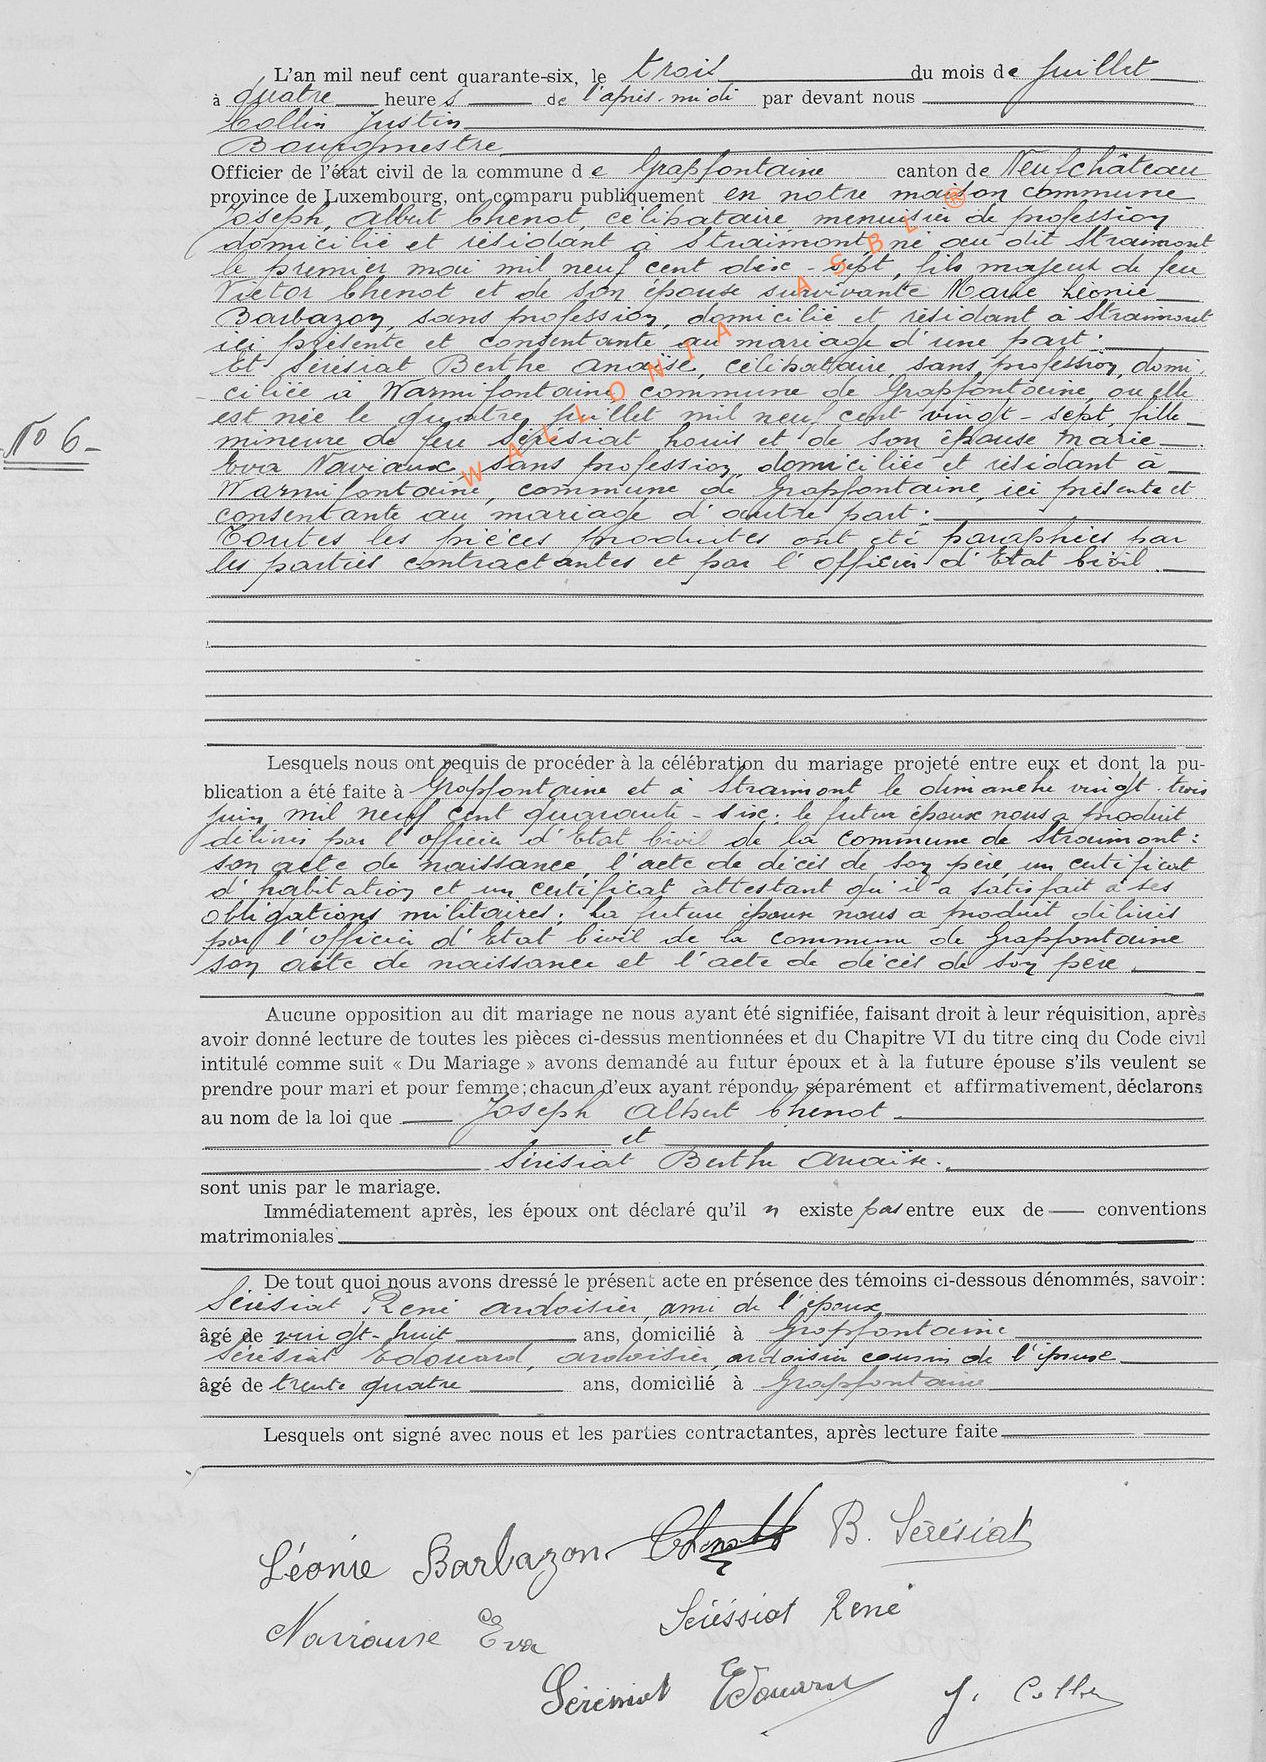 L'an mil neuf cent quarante-six, le trois du mois de juillet
à quatre heures de l'après-midi par devant nous
Collin Justin
Bourgmestre
Officier de l'état civil de la commune de Grapfontaine canton de Neufchâteau
province de Luxembourg, ont comparu publiquement en notre maison commune
Joseph, Albert Chenot, célibataire, menuisier de profession
domicilié et résidant à Straimont, né au dit Straimont
le premier mai mil neuf cent dix-sept, fils majeur de feu
Victor Chenot et de son épouse survivante Marie Léonie
Barbazon, sans profession, domicilié et résidant à Straimont
ici présente et consentante au mariage d'une part.
Et Sérésiat Berthe Anaïse, célibataire, sans profession, domi-
ciliée à Warmifontaine commune de Grapfontaine, où elle
est née le quatre juillet mil neuf cent vingt-sept, fille
N° 6
mineure de feu Sérésiat Louis et de son épouse Marie
Eva Naviaux sans profession, domiciliée et résidant à
Warmifontaine, commune de Grapfontaine, ici présente et
consentante au mariage d'autre part.
Toutes les pièces produites ont été paraphées par
les parties contractantes et par l'officier d'Etat Civil.
WALLONIA ASBL ®
Lesquels nous ont requis de procéder à la célébration du mariage projeté entre eux et dont la pu-
blication a été faite à Grapfontaine et à Straimont le dimanche vingt-trois
juin mil neuf cent quarante-six; le futur époux nous a produit
délivrés par l'officier d'Etat civil de la commune de Straimont:
son acte de naissance, l'acte de décès de son père, un certificat
d'habitation et un certificat attestant qu'il a satisfait à ses
obligations militaires; la future épouse nous a produit délivrés
par l'officier d'Etat Civil de la commune de Grapfontaine
son acte de naissance et l'acte de décès de son père.
Aucune opposition au dit mariage ne nous ayant été signifiée, faisant droit à leur réquisition, après
avoir donné lecture de toutes les pièces ci-dessus mentionnées et du Chapitre VI du titre cinq du Code civil
intitulé comme suit « Du Mariage » avons demandé au futur époux et à la future épouse s'ils veulent se
prendre pour mari et pour femme; chacun d'eux ayant répondu séparément et affirmativement, déclarons
au nom de la loi que Joseph Albert Chenot
et
Sérésiat Berthe Anaïse.
sont unis par le mariage.
Immédiatement après, les époux ont déclaré qu'il n existe pas entre eux de conventions
matrimoniales
De tout quoi nous avons dressé le présent acte en présence des témoins ci-dessous dénommés, savoir:
Sérésiat René ardoisier, ami de l'époux
âgé de vingt-huit ans, domicilié à Grapfontaine
Sérésiat Edouard, ardoisier, ardoisier cousin de l'épouse
âgé de trente quatre ans, domicilié à Grapfontaine
Lesquels ont signé avec nous et les parties contractantes, après lecture faite
Léonie Barbazon Chenot B. Sérésiat
Naviaux Eva Séréssiat René
Sérésiat Edouard J. Collin